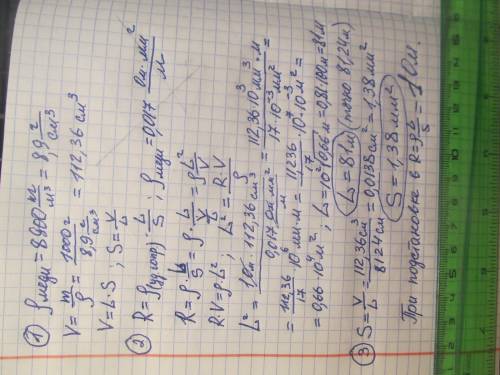 ① ρмеди = 8900 кг/м³ = 8,9 г/см³
V = m/ρ = 1000 г / 8,9 г/см³ = 112,36 см³
V = L·S ; S = V/L
② R = ρ(удусопр) · L/S ; ρмеди = 0,017 Ом·мм²/м
R = ρ · L/S = ρ · L/(V/L) = ρ L²/V
R·V = ρ·L² ; L² = R·V/ρ
L² = 1 Ом · 112,36 см³ / 0,017 Ом·мм²/м = 112,36·10³ мм³·м / 17·10⁻³ мм² =
= 112,36/17 · 10⁶ мм·м = 112,36/17 · 10⁶·10⁻³ м² =
= 0,66·10⁴ м² ; L = 10²√0,66 м = 0,81·100 м = 81 м
L = 81 м (точно 81,24 м)
③ S = V/L = 112,36 см³ / 8124 см = 0,0138 см² = 1,38 мм²
S = 1,38 мм²
При подстановке в R = ρ L/S = 1 Ом.